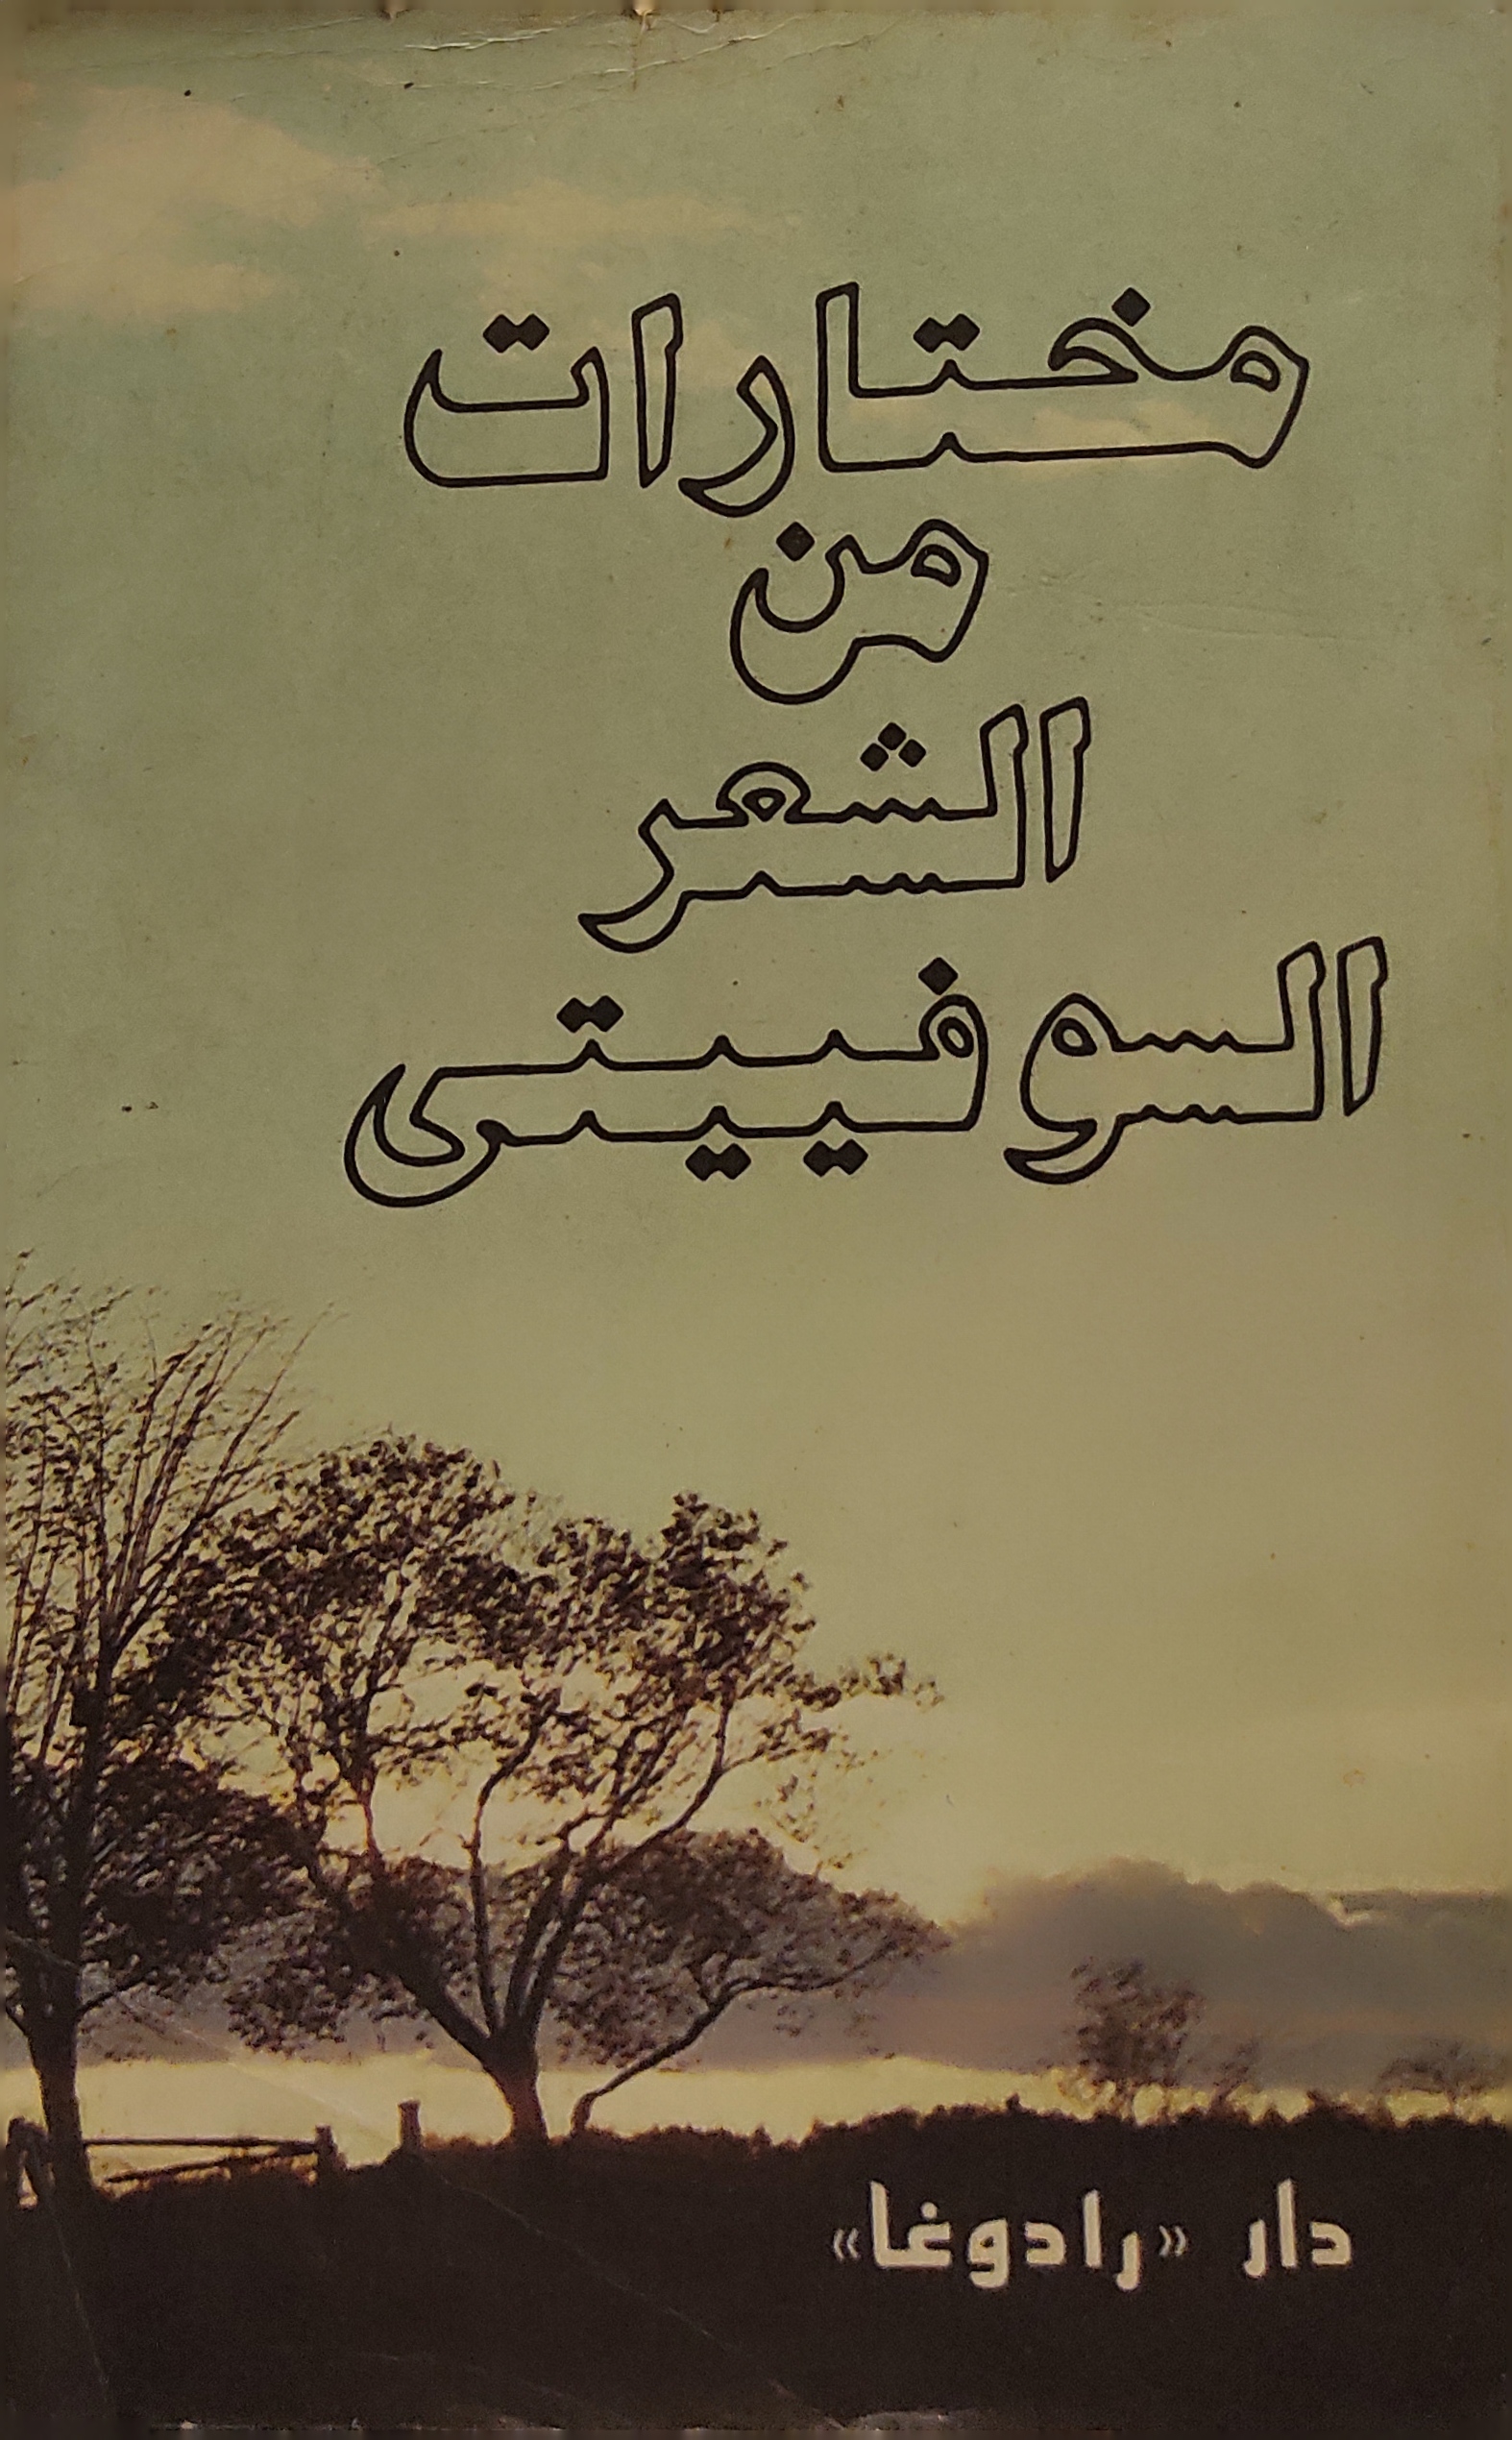 مختارات
من
الشعر
السوفييتى
دار «رادوغا»